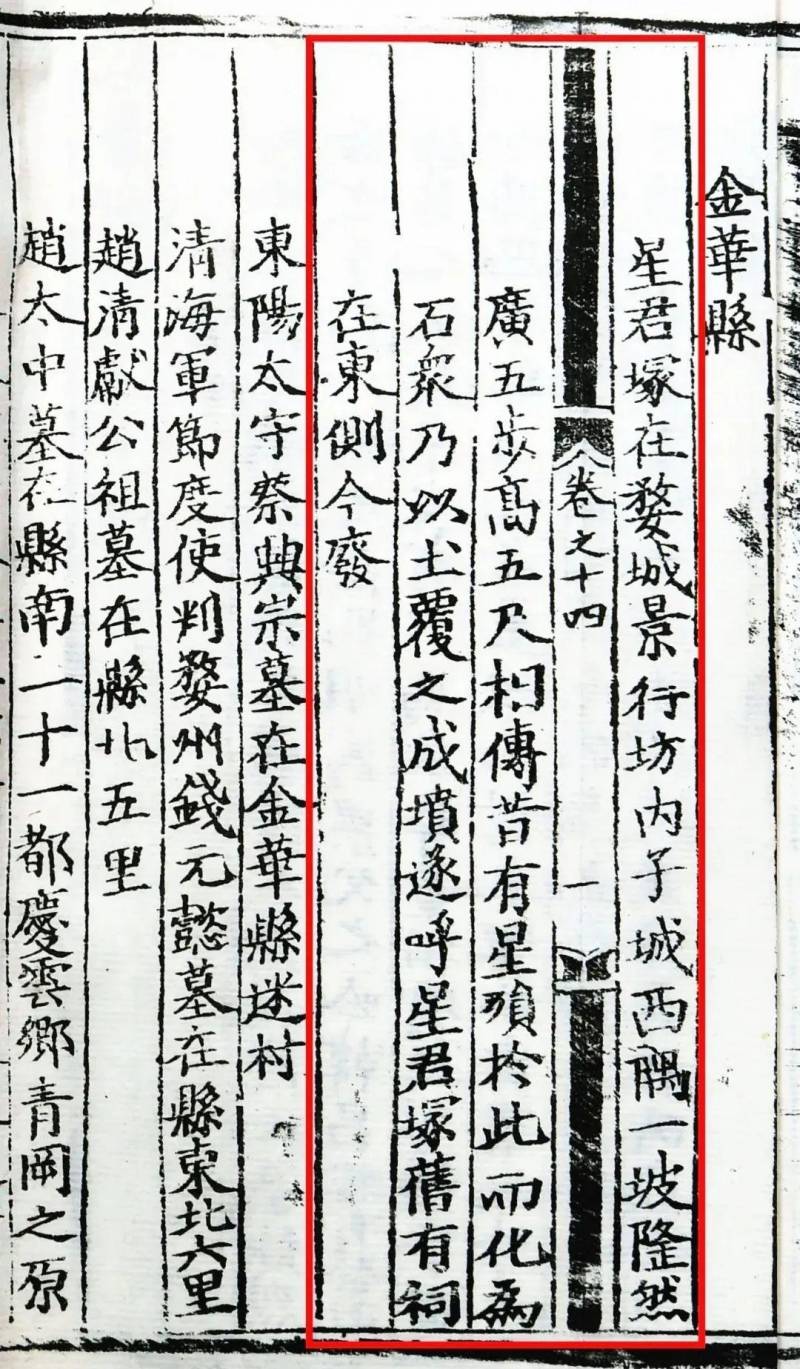 金華縣
星君塚在婺城景行坊内子城西隅一坡隆然
卷之十四
一
廣五步高五尺相傳昔有星殞於此而化為
石衆乃以土覆之成墳遂呼星君塚舊有祠
在東側今廢
東陽太守蔡興宗墓在金華縣迷村
清海軍節度使判婺州錢元懿墓在縣東北六里
趙清獻公祖墓在縣北五里
趙太中墓在縣南二十一都慶雲鄉青岡之原